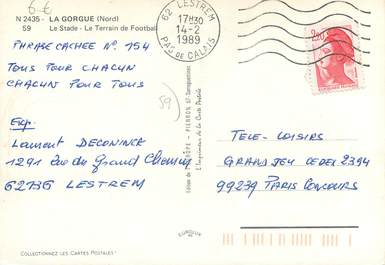 6 €
N 2435 - LA GORGUE (Nord)
59 Le Stade - Le Terrain de Football
PHRASE CACHEE N° 154
TOUS POUR CHACUN
CHACUN POUR TOUS
59
Exp.
Laurent DECONINCK
1291 Rue du Grand Chemin
62136 LESTREM
COLLECTIONNEZ LES CARTES POSTALES
62 LESTREM
17H30
14-2
1989
PAS DE CALAIS
2,20
L'Imprimeur de la Carte Postale
EUROLUX
TELE-LOISIRS
GRAND JEU CEDEX 2394
99239 PARIS CONCOURS